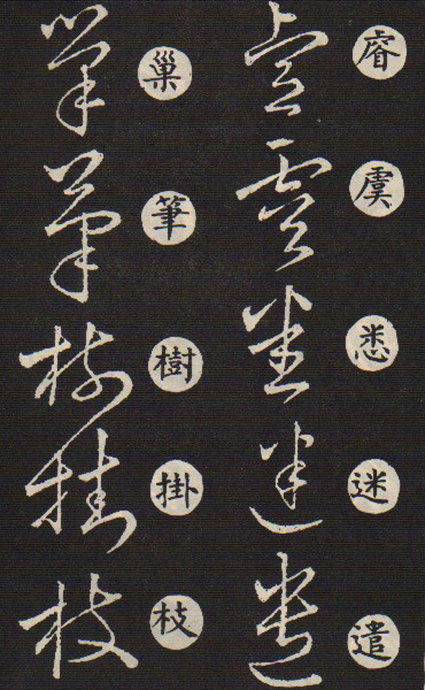 睿虞悉迷遣
巢筆樹掛枝